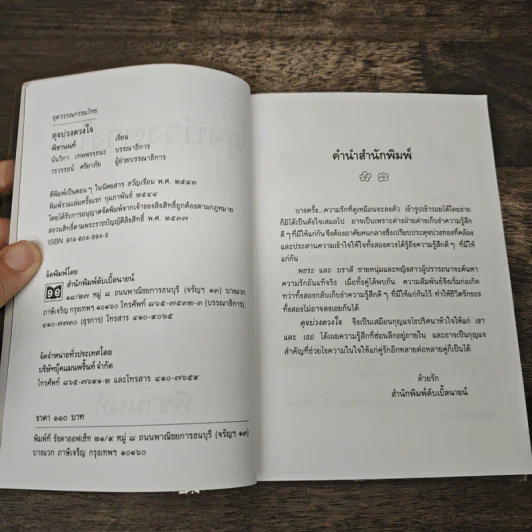 ชุดวรรณกรรมไทย
ดุจบ่วงดวงใจ
พิชานนท์ เขียน
นันวิภา เทพพรรธนะ บรรณาธิการ
วรวรรณ์ ศรียาภัย ผู้ช่วยบรรณาธิการ
ตีพิมพ์เป็นตอน ๆ ในนิตยสาร ขวัญเรือน พ.ศ. ๒๕๔๓
พิมพ์รวมเล่มครั้งแรก กุมภาพันธ์ ๒๕๔๔
โดยได้รับการอนุญาตจัดพิมพ์จากเจ้าของลิขสิทธิ์ถูกต้องตามกฎหมาย
สงวนลิขสิทธิ์ตามพระราชบัญญัติลิขสิทธิ์ พ.ศ. ๒๕๓๗
ISBN 974-604-694-5
จัดพิมพ์โดย
สำนักพิมพ์ดับเบิ้ลนายน์
๑๘/๒๗ หมู่ ๘ ถนนพาณิชยการธนบุรี (จรัญฯ ๑๓) บางแวก
ภาษีเจริญ กรุงเทพฯ ๑๐๑๖๐ โทรศัพท์ ๘๖๕-๗๕๓๒-๓ (บรรณาธิการ),
๔๑๐-๗๗๓๐ (ธุรการ) โทรสาร ๔๑๐-๙๐๖๕
จัดจำหน่ายทั่วประเทศโดย
บริษัทบุ๊คแมนพริ้นท์ จำกัด
โทรศัพท์ ๘๖๕-๗๖๙๑-๒ และโทรสาร ๔๑๐-๗๖๕๙
ราคา ๑๑๐ บาท
พิมพ์ที่ รัชดาออฟเซ็ท ๒๑/๙ หมู่ ๘ ถนนพาณิชยการธนบุรี (จรัญฯ ๑๓)
บางแวก ภาษีเจริญ กรุงเทพฯ ๑๐๑๖๐
คำนำสำนักพิมพ์
บางครั้ง...ความรักที่ดูเหมือนจะลงตัว เข้ารูปเข้ารอยได้โดยง่าย
ก็มิได้เป็นดังใจเสมอไป อาจเป็นเพราะต่างฝ่ายต่างเก็บงำความรู้สึก
ดี ๆ ที่มีให้แก่กัน จึงต้องอาศัยคนกลางซึ่งเปรียบประดุจบ่วงทองที่คล้อง
และประสานความเข้าใจให้ใจทั้งสองดวงได้รู้ถึงความรู้สึกดี ๆ ที่มีให้
แก่กัน
พชระ และ บราลี ชายหนุ่มและหญิงสาวผู้ปรารถนาจะค้นหา
ความรักอันแท้จริง เมื่อทั้งคู่ได้พบกัน ความสัมพันธ์จึงเริ่มก่อเกิด
ทว่าทั้งสองกลับเก็บงำความรู้สึกดี ๆ ที่มีให้แก่กันไว้ ทำให้ชีวิตรักของ
ทั้งสองไม่อาจลงเอยกันได้
ดุจบ่วงดวงใจ จึงเป็นเสมือนกุญแจไขปริศนาหัวใจให้แก่ เขา
และ เธอ ได้เผยความรู้สึกที่ซ่อนลึกอยู่ภายใน และอาจเป็นกุญแจ
สำคัญที่ช่วยไขความในใจให้แก่คู่รักอีกหลายต่อหลายคู่ก็เป็นได้
ด้วยรัก
สำนักพิมพ์ดับเบิ้ลนายน์